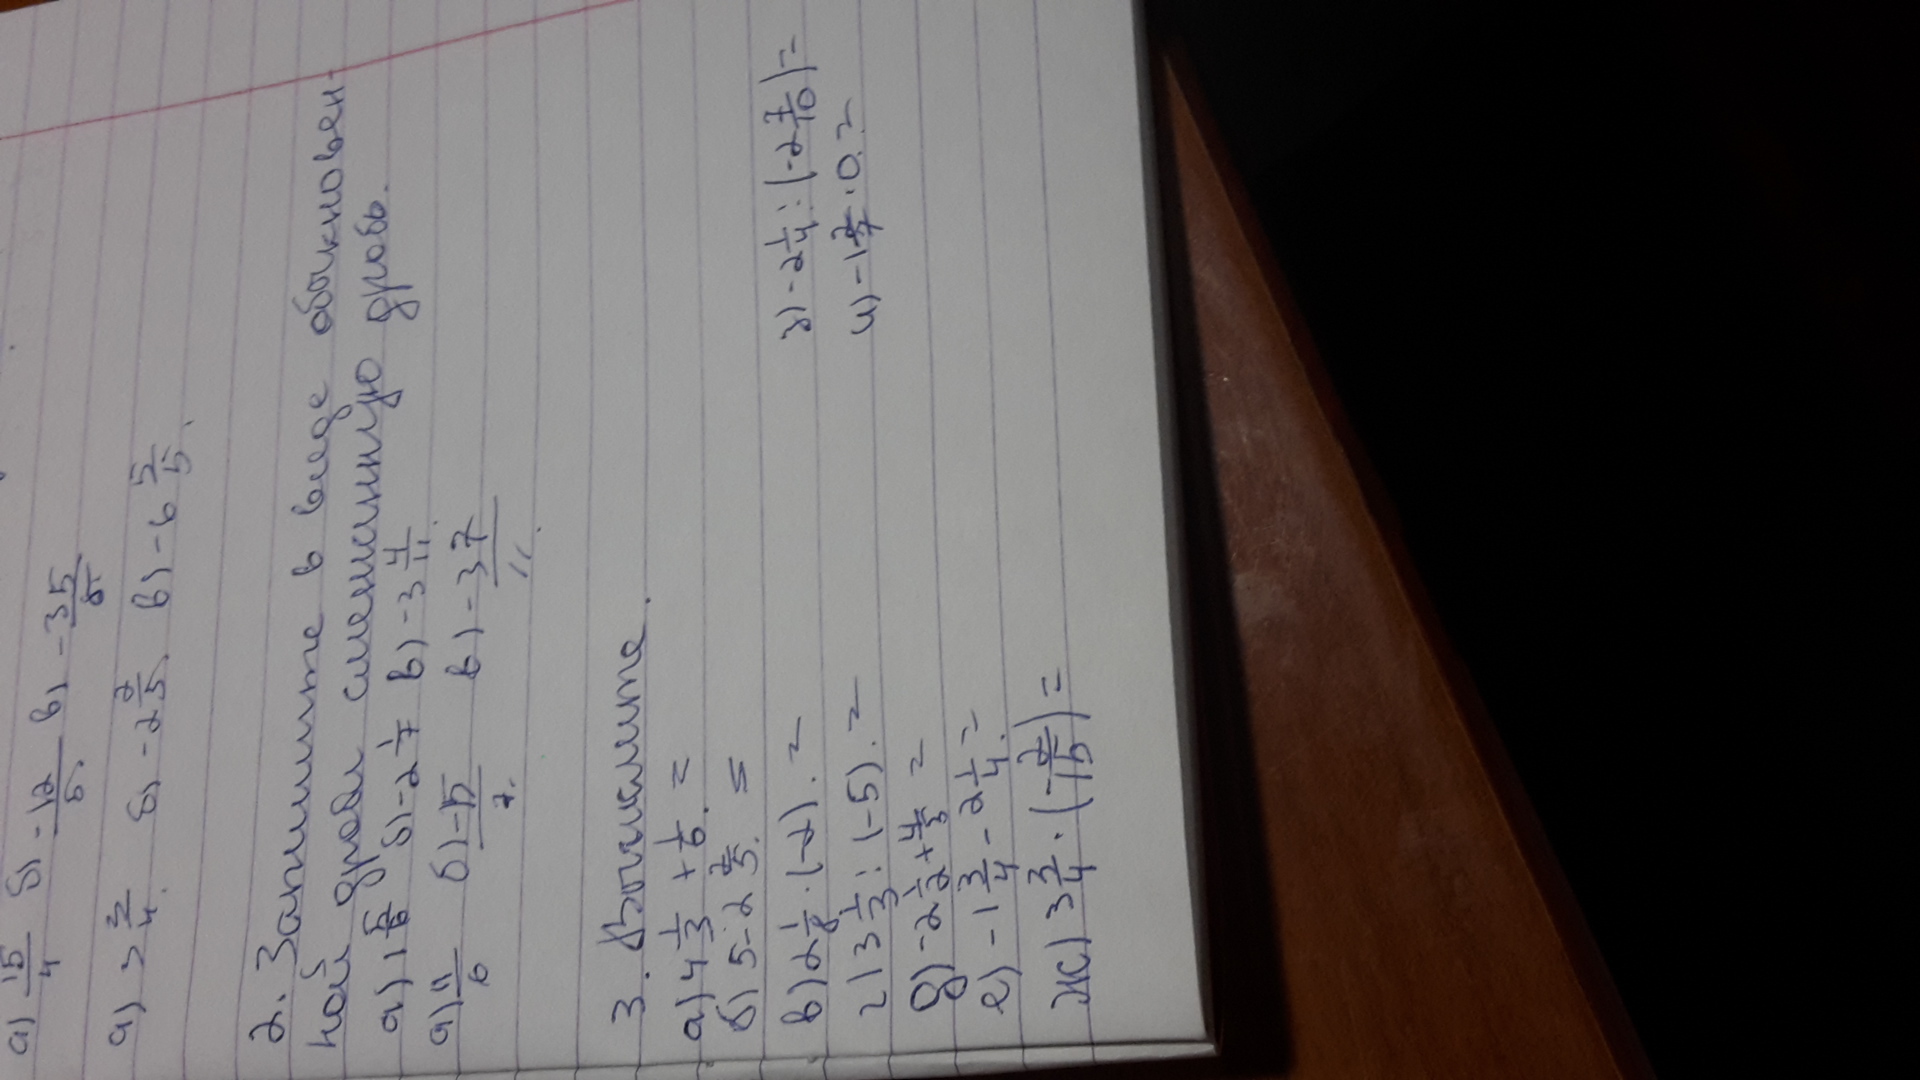 а) 15/4 б) -12/5. в) -35/8
а) 3 3/4. б) -2 2/5. в) -6 5/5.
2. Запишите в виде обыкновен-
ной дроби смешанную дробь.
а) 1 5/6 б) -2 1/7 в) -3 4/11.
а) 11/6 б) -15/7. в) -37/11.
3. Вычислите.
а) 4 1/3 + 1/6. =
б) 5 - 2 2/5. =
в) 2 1/8 · (-2). =
г) 3 1/3 : (-5). =
д) -2 1/2 + 4/3 =
е) -1 3/4 - 2 1/4. =
ж) 3 3/4 · (-2/15) =
з) -2 1/4 : (-2 7/10) =
и) -1 2/7 · 0. =